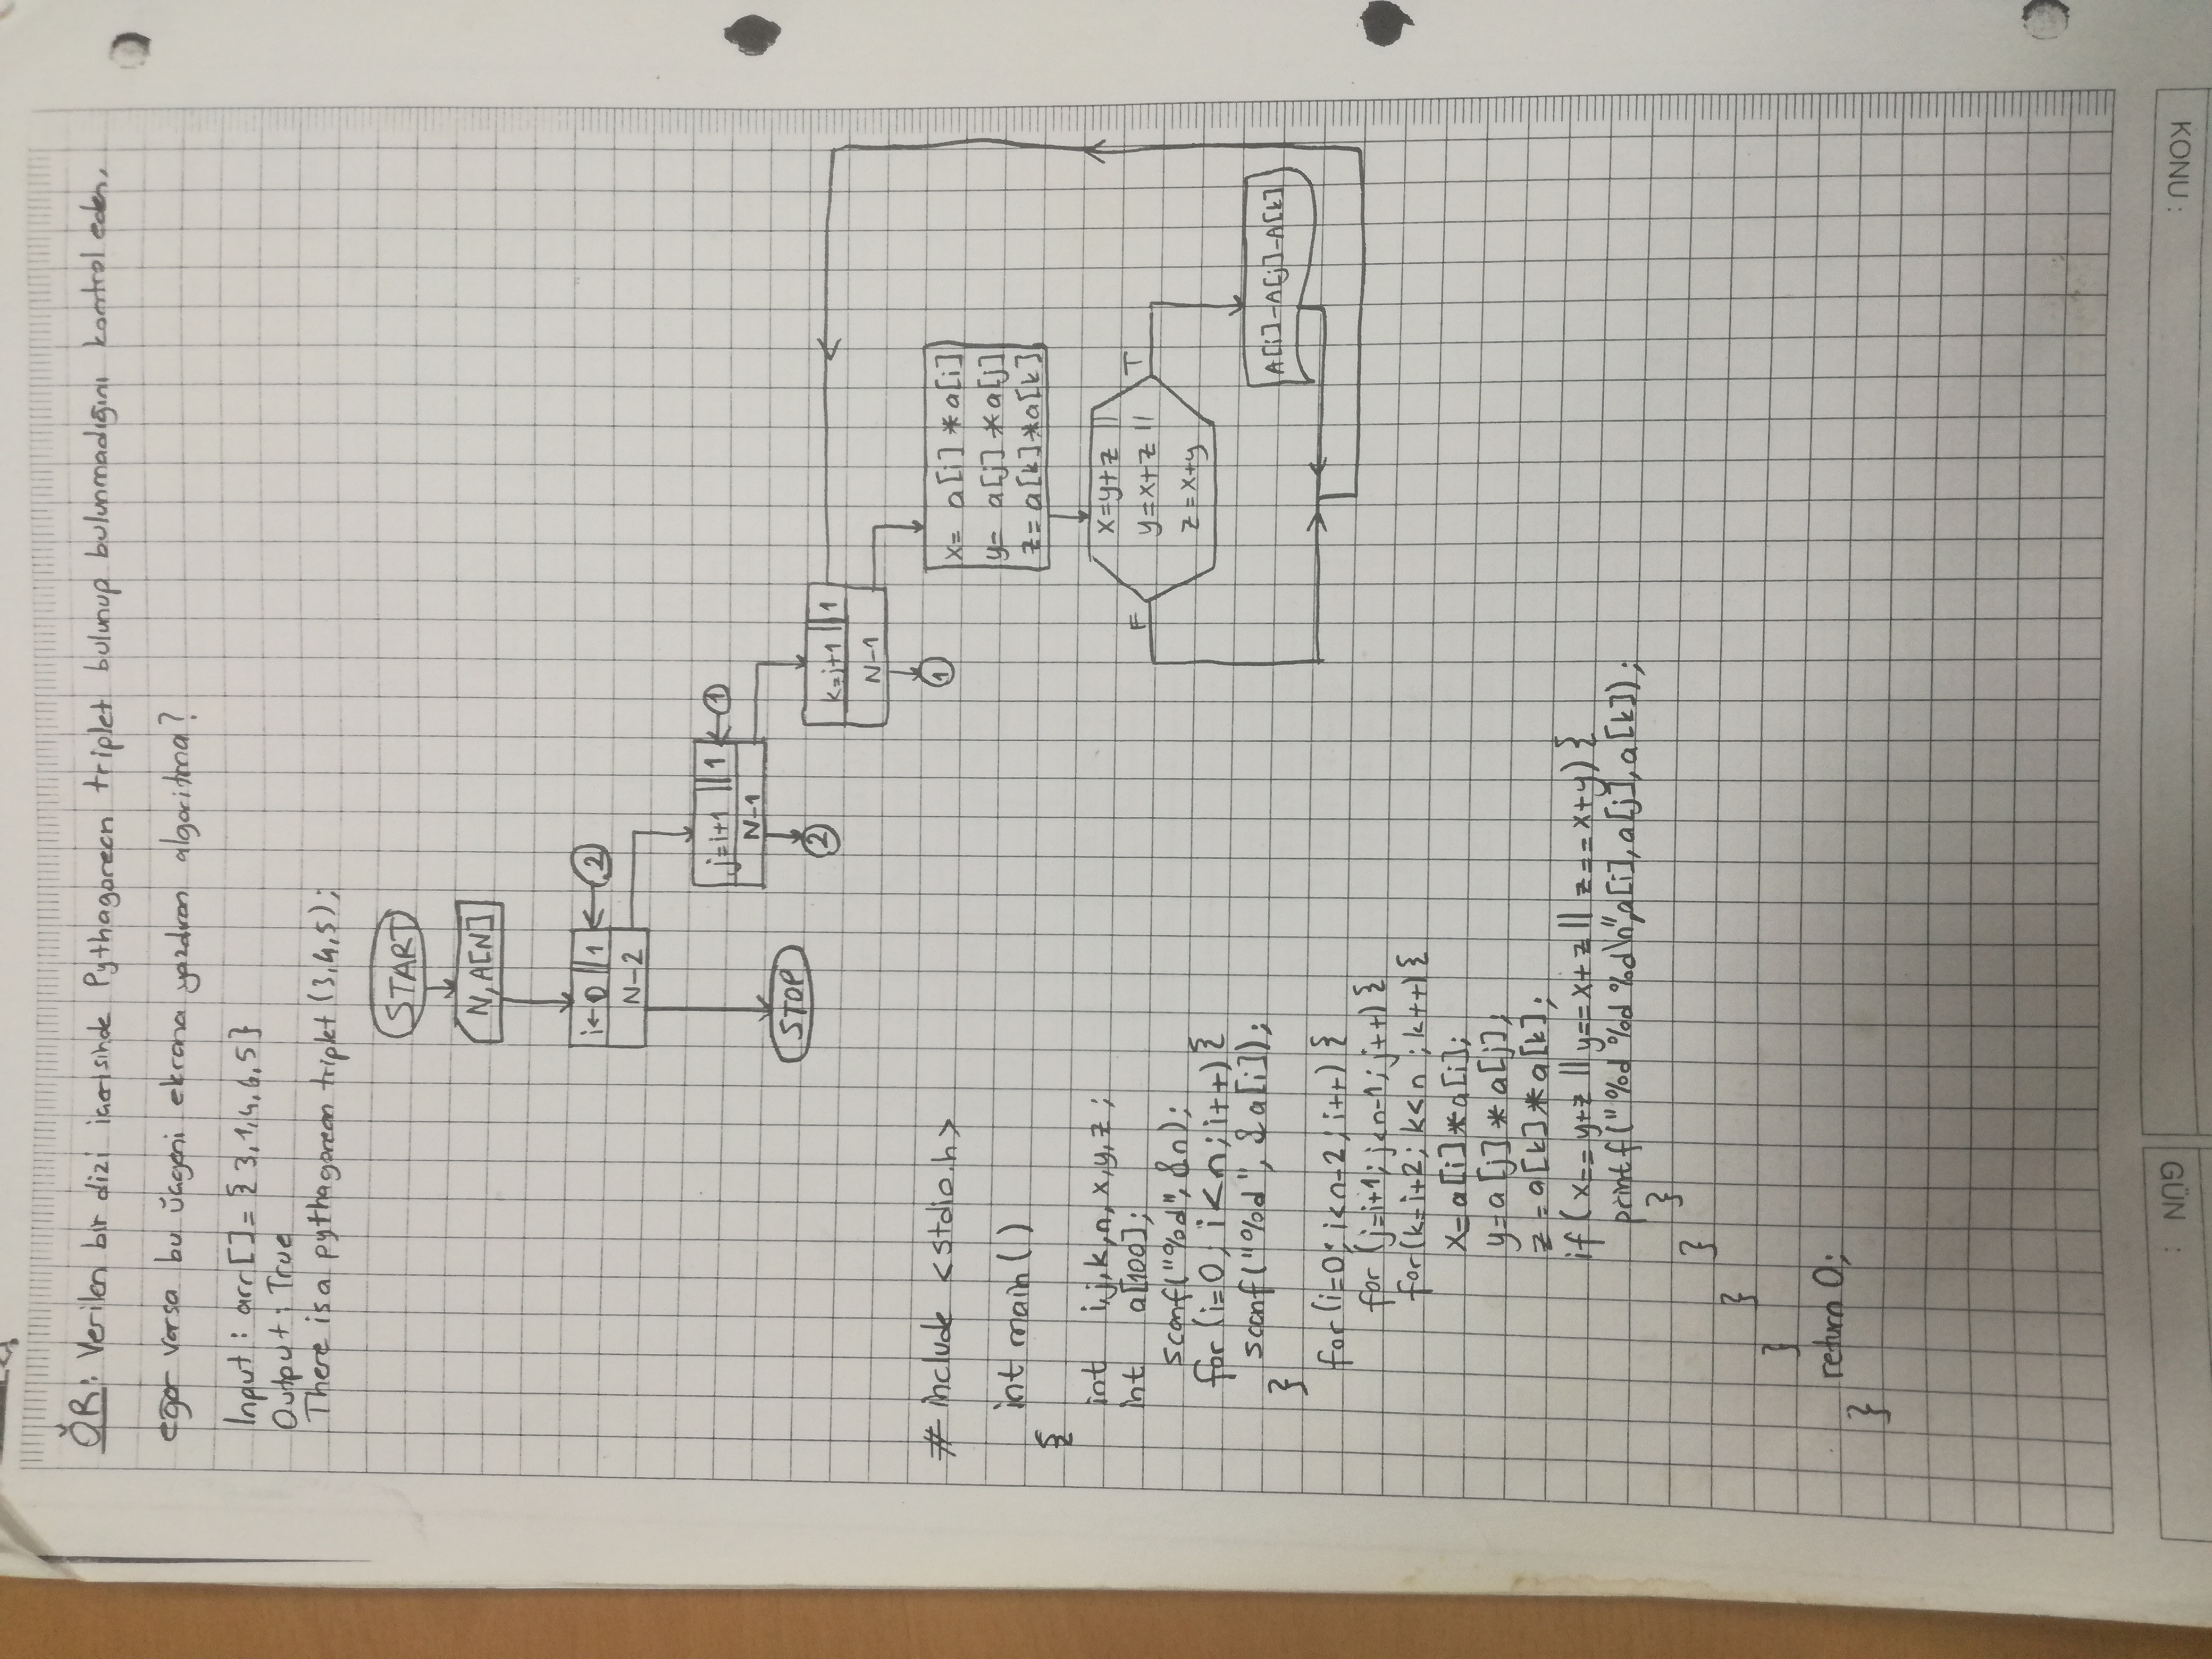 ÖR: Verilen bir dizi içerisinde Pythagorean triplet bulunup bulunmadığını kontrol eden,
eğer varsa bu üçgeni ekrana yazdıran algoritma?
Input : arr[] = { 3,1,4,6,5 }
Output : True
There is a pythagorean triplet (3,4,5);
START
N, A[N]
i← 0 || 1 ← 2
N-2
j=i+1 || 1 ← 1
N-1
STOP
2
k=j+1 || 1
N-1
1
x= a[i] *a[i]
y= a[j] *a[j]
z= a[k]*a[k]
x=y+z ||
F
y=x+z ||
T
z=x+y
A[i]-A[j]-A[k]
# include <stdio.h>
int main()
{
int i,j,k,n,x,y,z;
int a[100];
scanf("%d", &n);
for (i=0; i<n; i++){
scanf("%d", &a[i]);
}
for(i=0; i<n-2; i++) {
for (j=i+1; j<n-1; j++){
for(k=i+2; k<n ; k++){
x=a[i]*a[i];
y=a[j] * a[j];
z=a[k]*a[k];
if (x==y+z || y==x+z || z==x+y) {
printf("%d %d %d\n",a[i],a[j],a[k]);
}
}
}
}
return 0;
}
GÜN :
KONU :